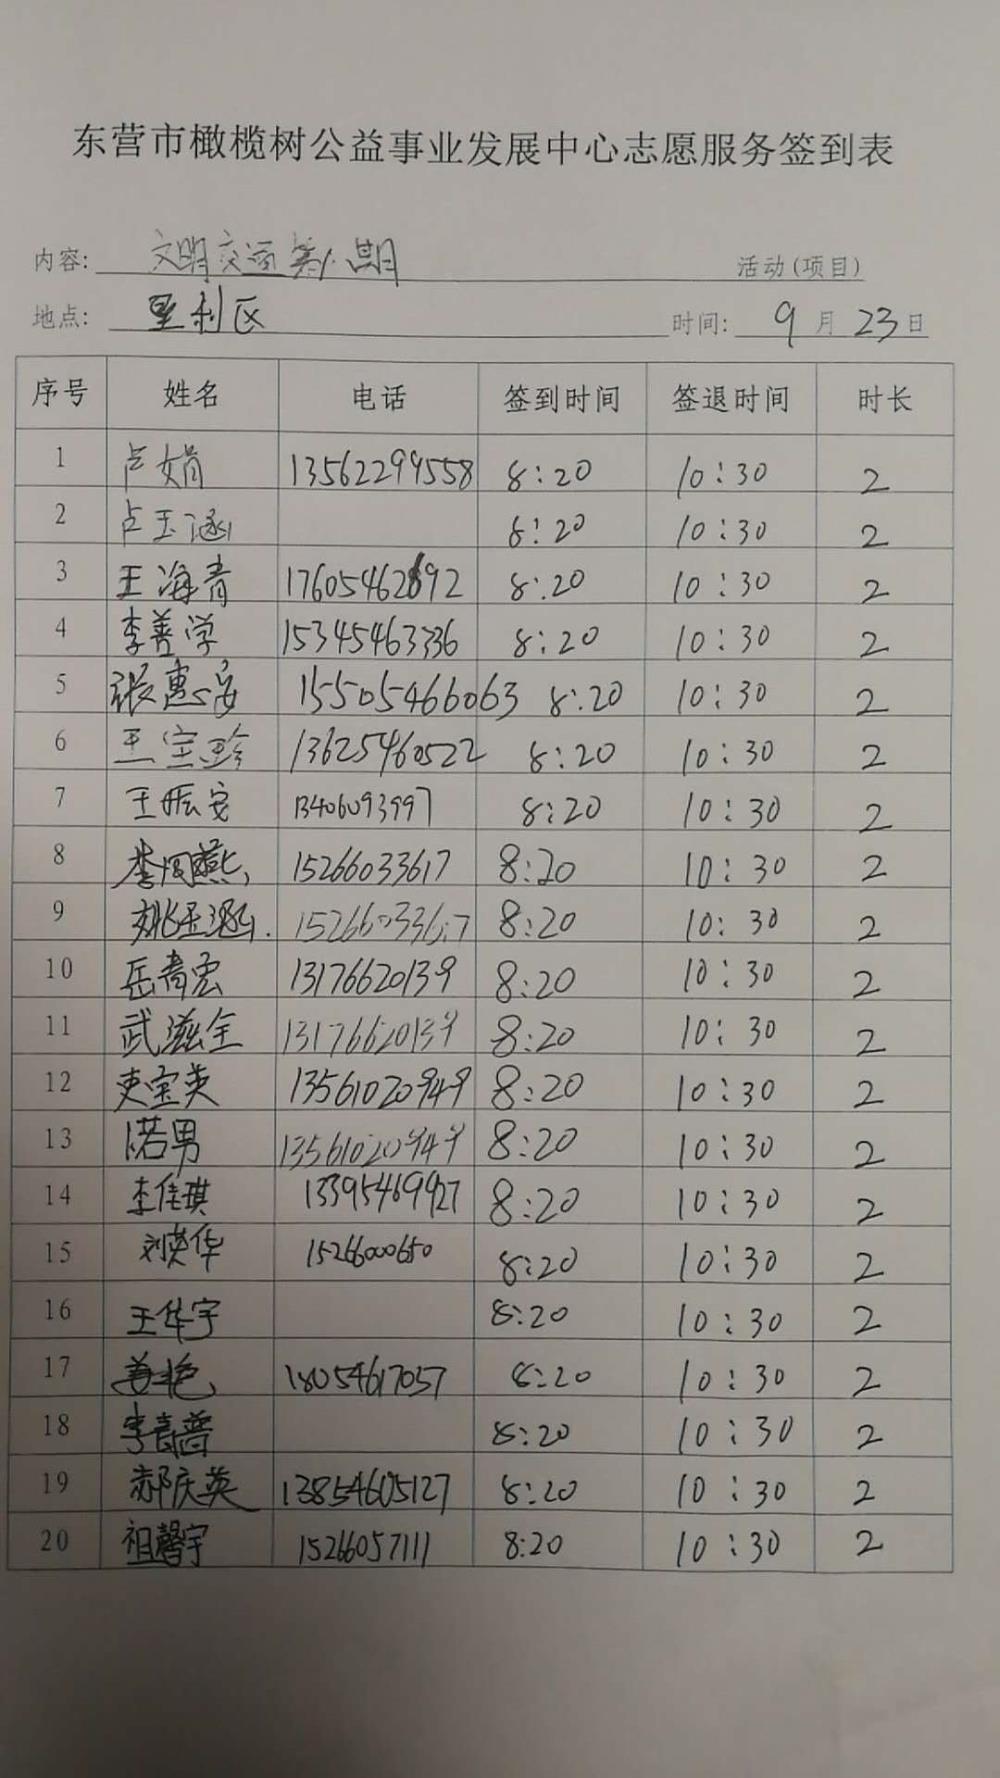 东营市橄榄树公益事业发展中心志愿服务签到表
内容: 文明交通第八期 活动(项目)
地点: 垦利区 时间: 9月23日
序号 姓名 电话 签到时间 签退时间 时长
1 卢娟 13562299558 8:20 10:30 2
2 卢玉涵 8:20 10:30 2
3 王海青 17605462892 8:20 10:30 2
4 李善学 15345463336 8:20 10:30 2
5 张惠安 15505466063 8:20 10:30 2
6 王宝珍 13625460522 8:20 10:30 2
7 王振安 13406093997 8:20 10:30 2
8 15266033617 8:20 10:30 2
9 15266033617 8:20 10:30 2
10 岳青宏 13176620139 8:20 10:30 2
11 武滋全 13176620139 8:20 10:30 2
12 吏宝英 13561020949 8:20 10:30 2
13 13561020949 8:20 10:30 2
14 李佳琪 13395469927 8:20 10:30 2
15 刘英华 15266000650 8:20 10:30 2
16 王华宇 8:20 10:30 2
17 姜艳 18054617057 8:20 10:30 2
18 8:20 10:30 2
19 郝庆英 13854605127 8:20 10:30 2
20 祖馨宇 15266057111 8:20 10:30 2